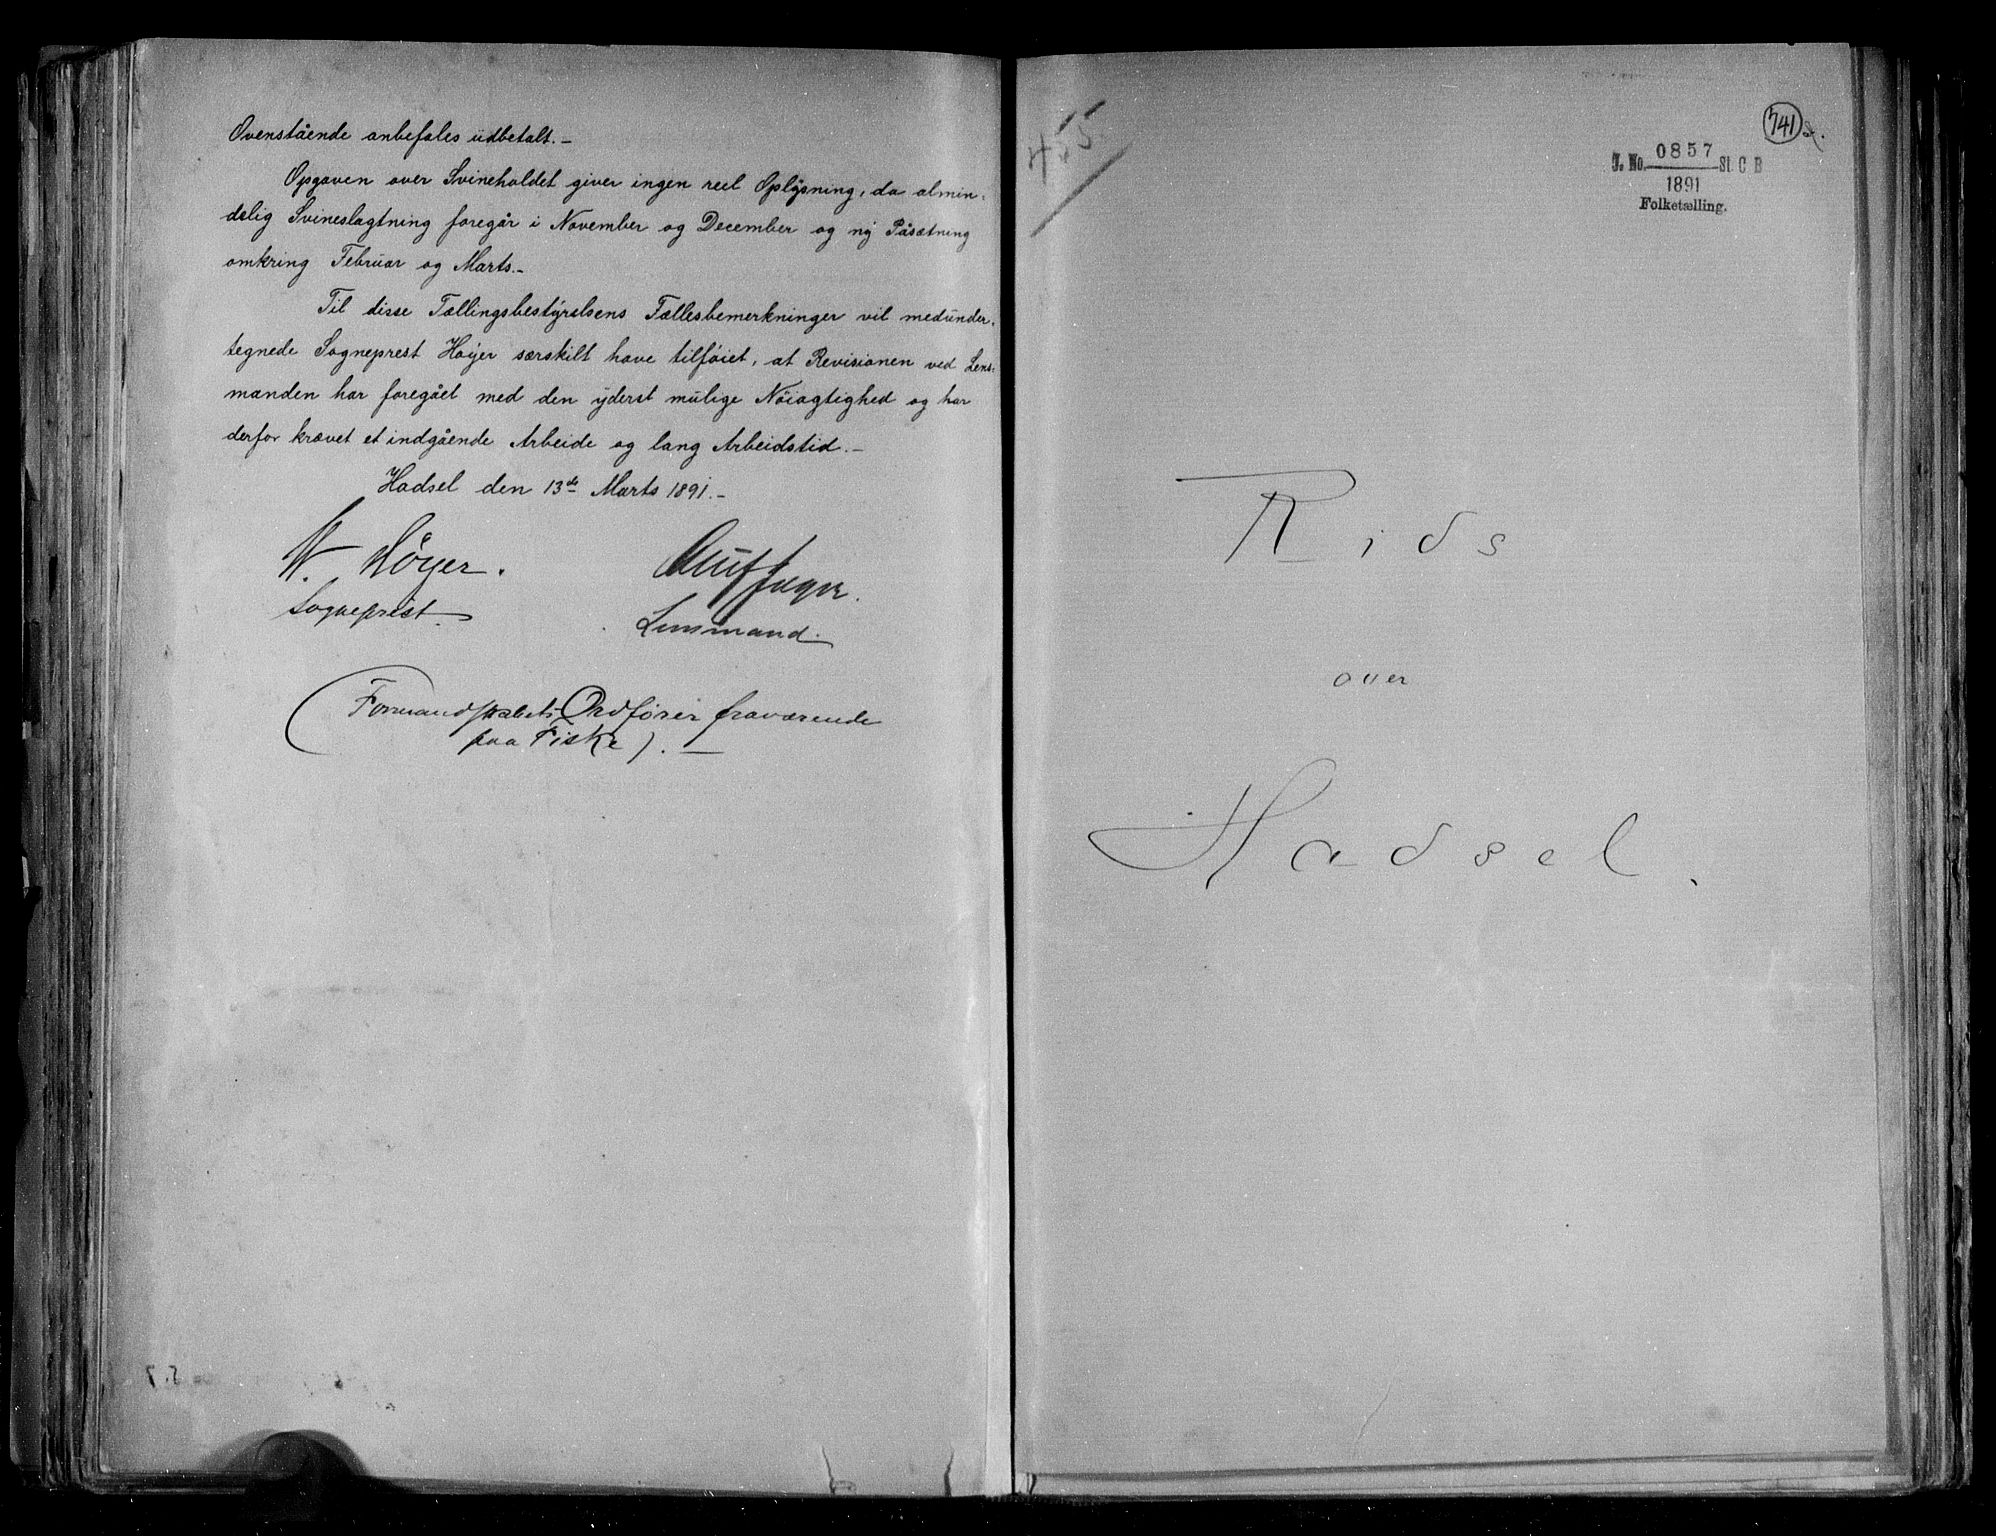 Ovenstående anbefales üdbetalt.-
Opgaven over Svineholdet giver ingen reel Oplÿsning, da almin-
delig Svineslagtning foregår i November og December og nÿ Påsætning
omkring Februar og Marts.-
Til disse Tællingsbestÿrelsens Fællesbemerkninger vil medünder-
tegnede Sogneprest Høÿer særskilt have tilføiet, at Revisionen ved Lens-
manden har foregået med den ÿderst mülige Nöiagtighed og har
derfor krævet et indgående Arbeide og lang Arbeidstid.-
Hadsel den 13de Marts 1891.-
W. Höyer.
Sogneprest.
Lensmand.
(Formandskabets Ordfører fraværende
paa Fiske). -
455.
741
J. No. 0857 St. C B
1891
Folketælling.
Rids
over
Hadsel.